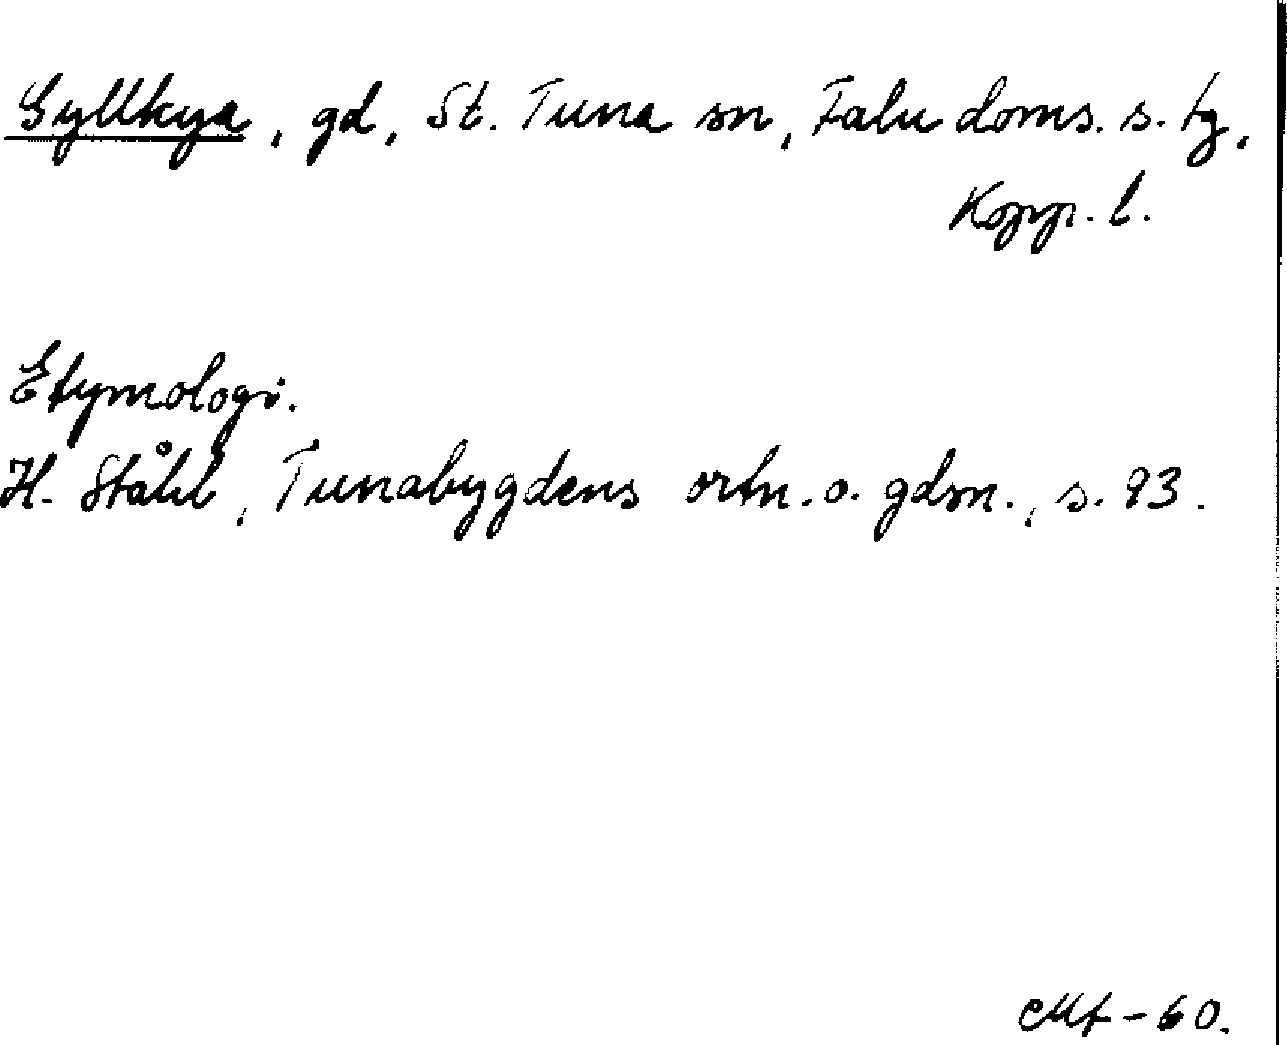 Gyllkya, gd, St. Tuna sn, Falu doms. s. tg,
Kopp. l.
Etymologi.
H. Ståhl, Tunabygdens ortn. o. gdsn., s. 93.
Mf-60.